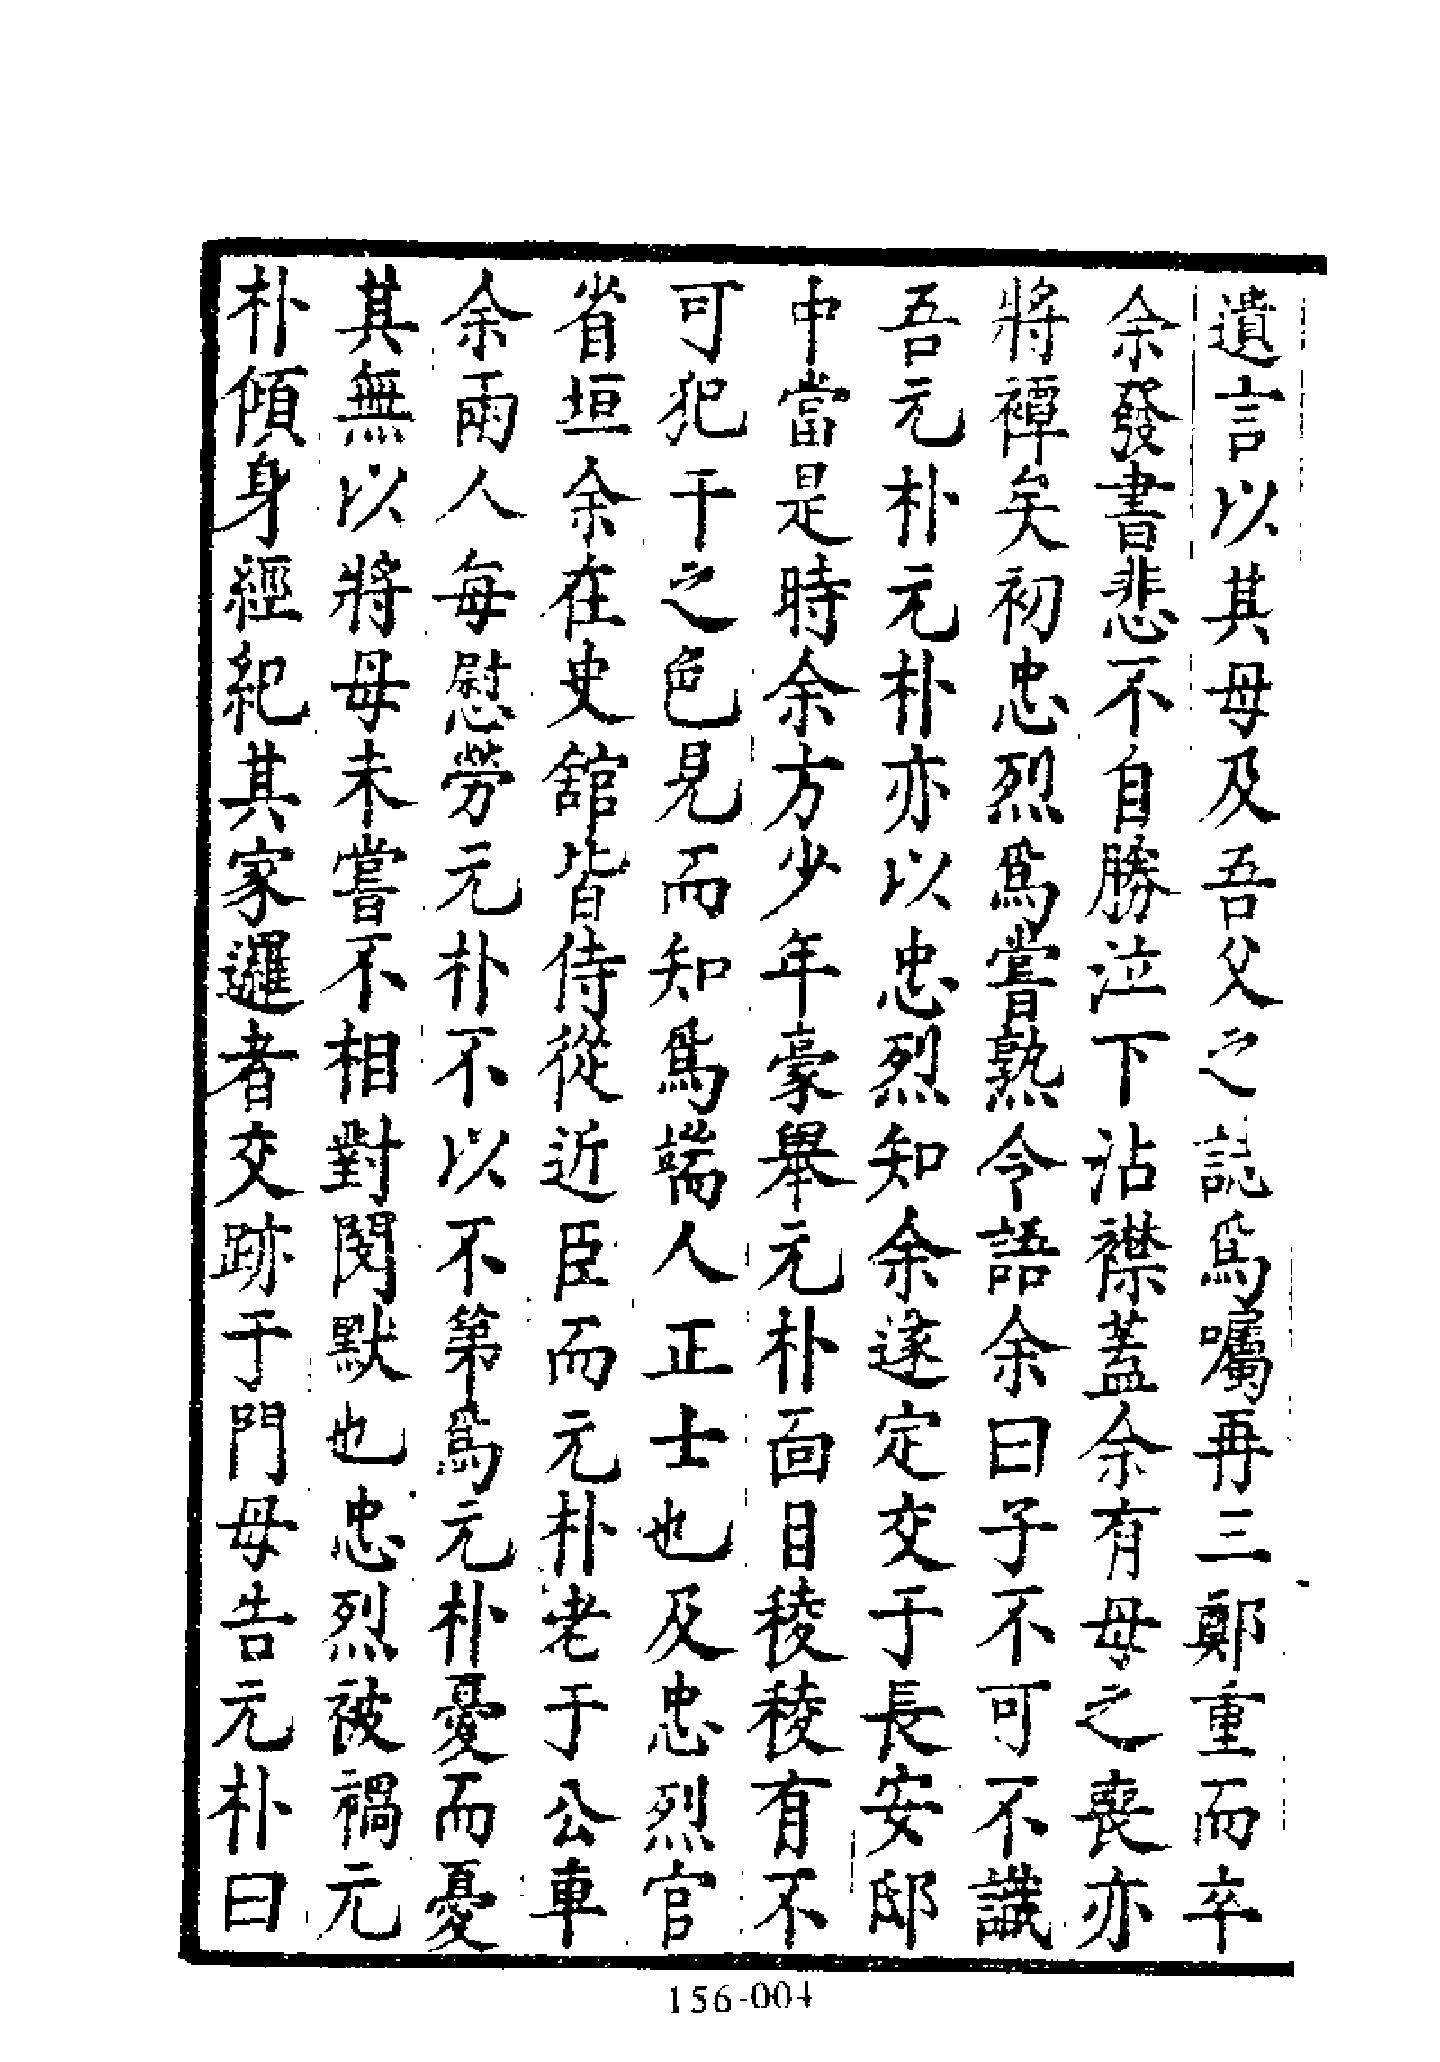 遺言以其母及吾父之誌爲囑再三鄭重而卒
余發書悲不自勝泣下沾襟蓋余有母之喪亦
將禫矣初忠烈爲嘗熟令語余曰子不可不識
吾元朴元朴亦以忠烈知余遂定交于長安邸
中當是時余方少年豪舉元朴面目稜稜有不
可犯干之色見而知爲端人正士也及忠烈官
省垣余在史館皆侍從近臣而元朴老于公車
余兩人每慰勞元朴不以不第爲元朴憂而憂
其無以將母未嘗不相對閔默也忠烈被禍元
朴傾身經紀其家邏者交跡于門母告元朴曰
156-004